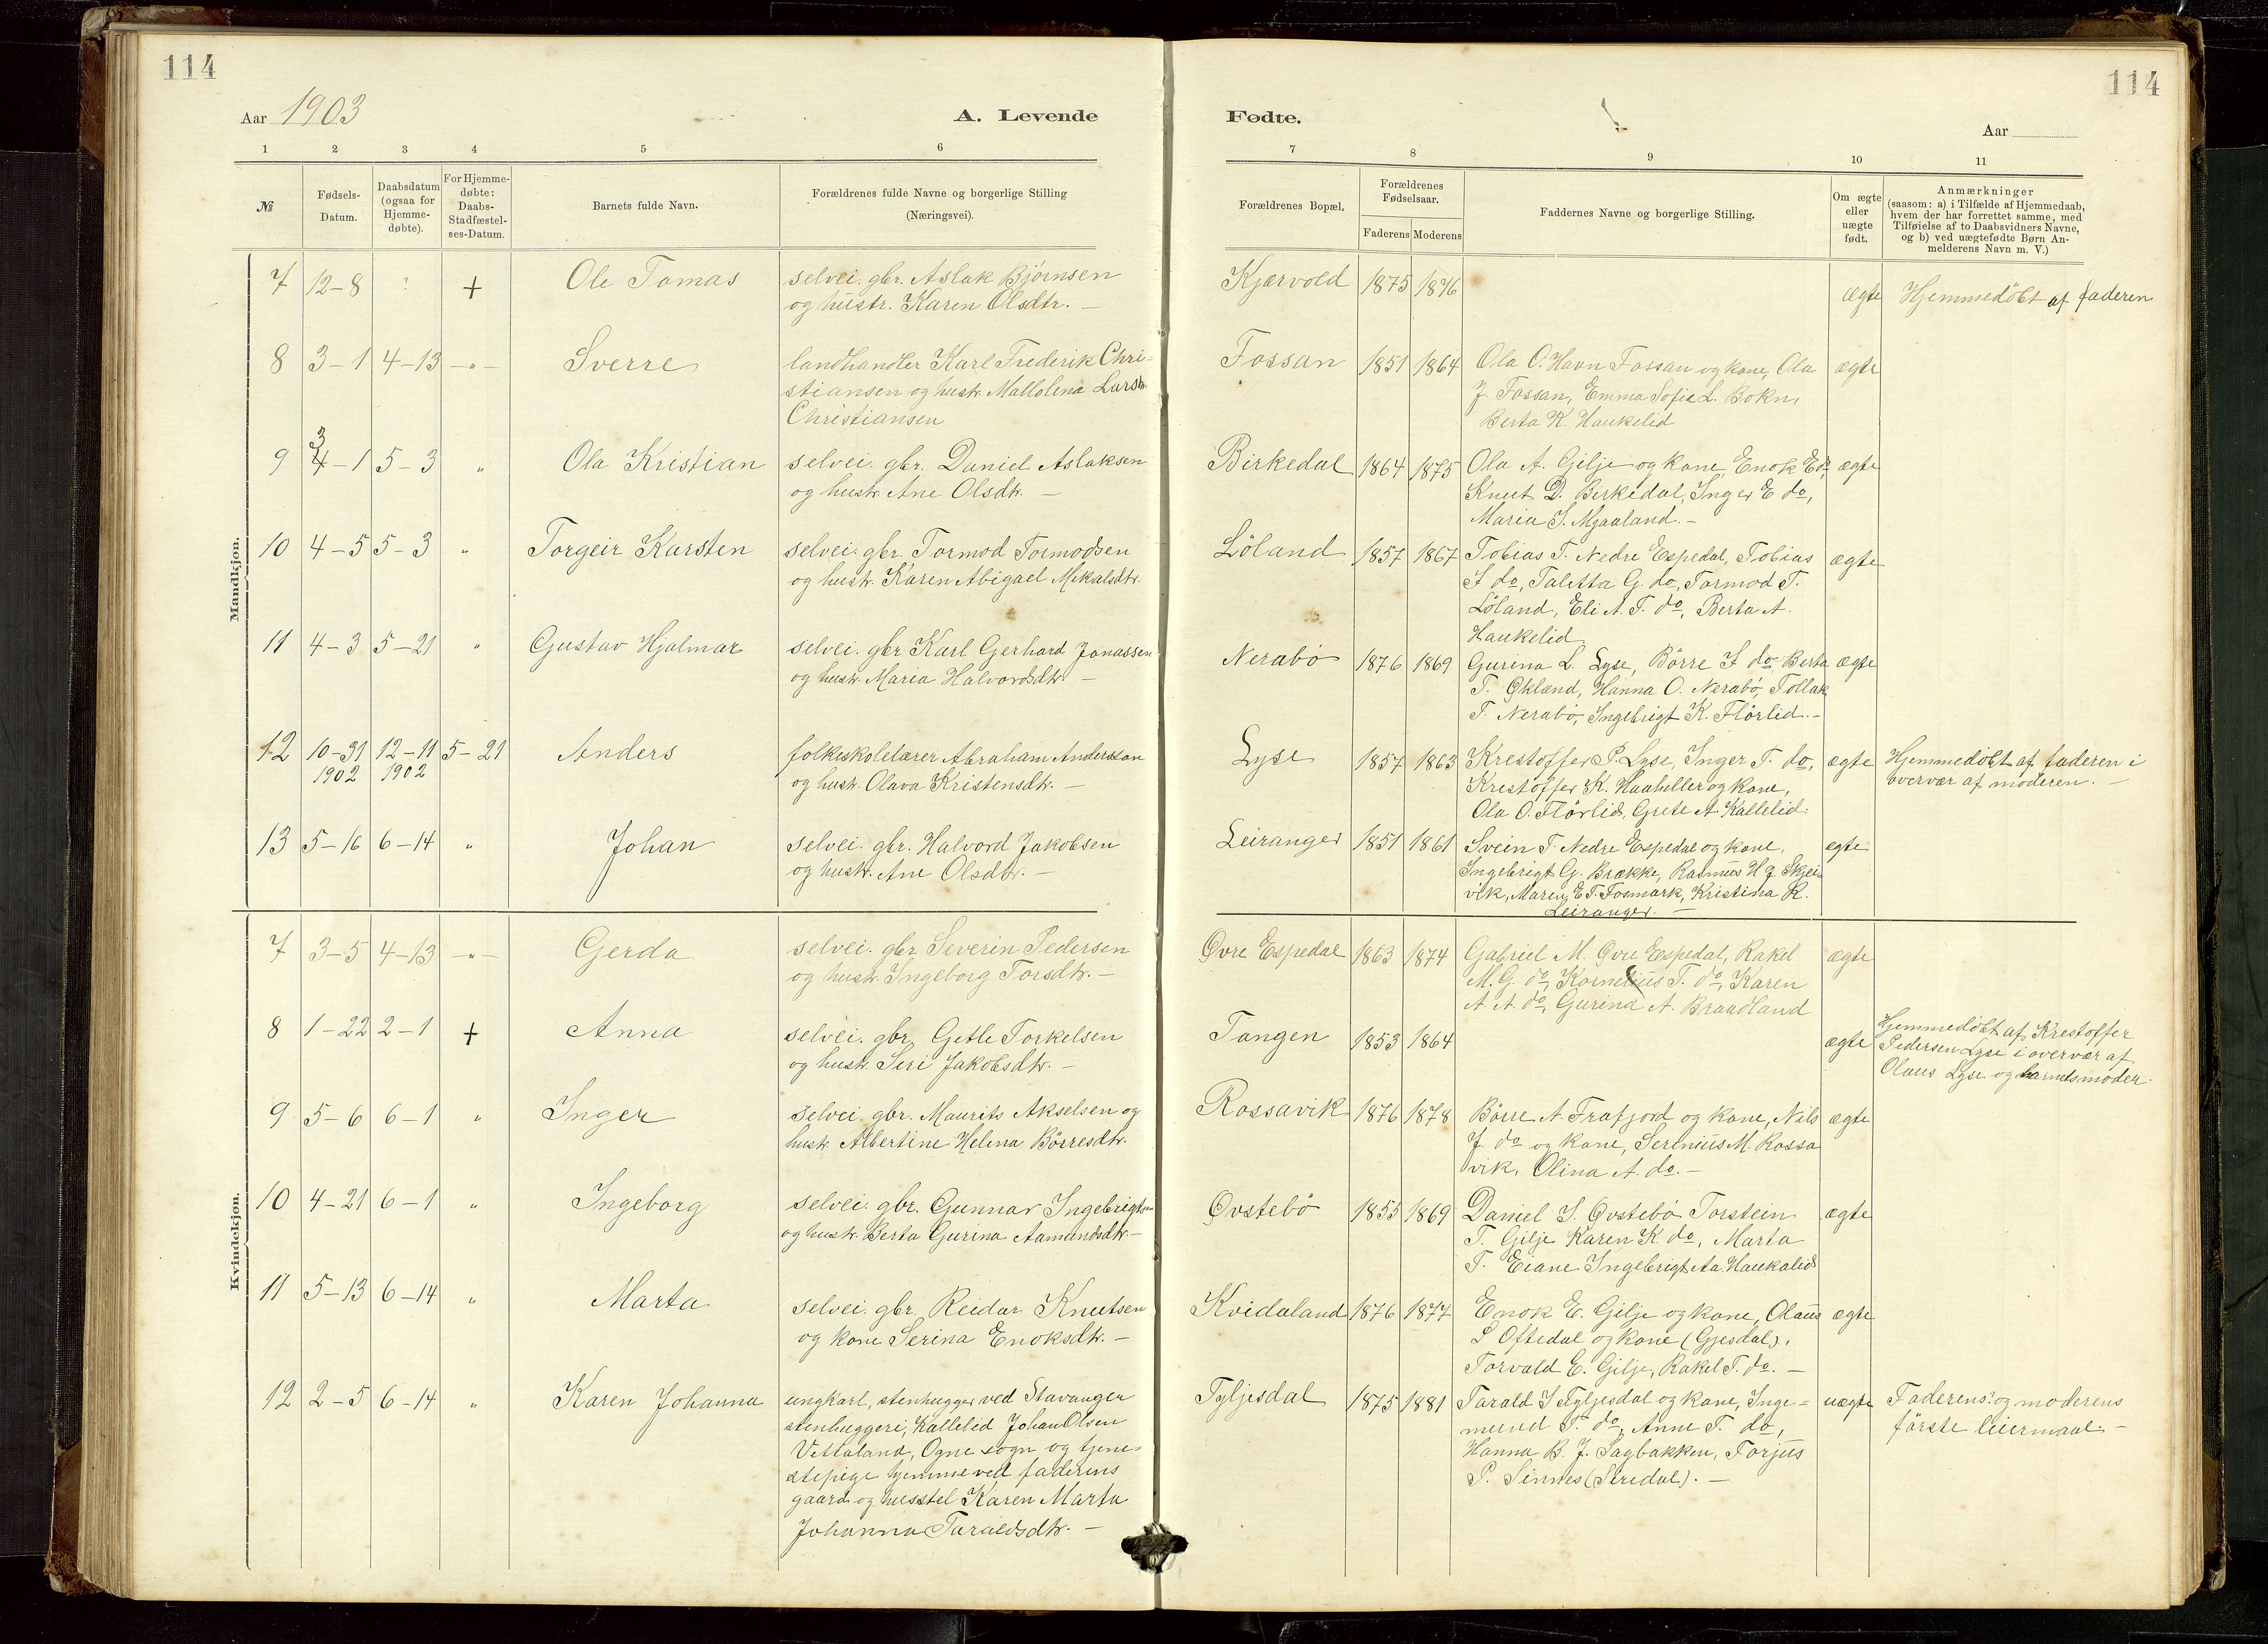 114
Aar 1903
A. Levende
1 2 3 4 5 6
№
Fødsels-Datum.
Daabsdatum (ogsaa for Hjemme-døbte).
For Hjemme-døbte: Daabs-Stadfæstel-ses-Datum.
Barnets fulde Navn.
Forældrenes fulde Navne og borgerlige Stilling (Næringsvei).
Mandkjøn.
7 12-8 ? + Ole Tomas selvei. gbr. Aslak Bjørnsen
og hustr. Karen Olsdtr. -
8 3-1 4-13 -"- Sverre landhandler Karl Frederik Chri-
stiansen og hustr. Mallolena Larsdtr.
Christiansen
9 3 4-1 5-3 " Ola Kristian selvei. gbr. Daniel Aslaksen
og hustr. Ane Olsdtr. -
10 4-5 5-3 " Torgeir Karsten selvei. gbr. Tormod Tormodsen
og hustr. Karen Abigael Mikalsdtr.
11 4-3 5-21 " Gustav Hjalmar selvei. gbr Karl Gerhard Jonassen
og hustr. Maria Halvorsdtr. -
12 10-31 1902 12-11 1902 5-21 Anders folkeskolelærer Abraham Andersson
og hustr. Olava Kristensdtr. -
13 5-16 6-14 " Johan selvei. gbr. Halvord Jakobsen
og hustr. Ane Olsdtr. -
Kvindekjøn.
7 3-5 4-13 -"- Gerda selvei. gbr Severin Pedersen
og hustr. Ingeborg Torsdtr. -
8 1-22 2-1 + Anna selvei. gbr. Getle Torkelsen
og hustr. Seri Jakobsdtr. -
9 5-6 6-1 " Inger selvei. gbr. Maurits Akselsen og
hustr. Albertine Helena Børresdtr.
10 4-21 6-1 " Ingeborg selvei. gbr. Gunnar Ingebrigtsen
og hustr. Berta Gurina Aamundsdtr. -
11 5-13 6-14 " Marta selvei. gbr. Reidar Knutsen
og kone Serina Enoksdtr. -
12 2-5 6-14 " Karen Johanna ungkarl, stenhugger ved Stavanger
stenhuggeri, Kallelid Johan Olsen
Vettaland, Ogne sogn og tjene-
stepige hjemme ved faderens
gaard og husstel Karen Marta
Johanna Taraldsdtr. -
114
Fødte.
Aar
7 8 9 10 11
Forældrenes Bopæl.
Forældrenes Fødselsaar.
Faderens Moderens
Faddernes Navne og borgerlige Stilling.
Om ægte eller uægte født.
Anmærkninger
(saasom: a) i Tilfælde af Hjemmedaab,
hvem der har forrettet samme, med
Tilføielse af to Daabsvidners Navne,
og b) ved uægtefødte Børn An-
melderens Navn m. V.)
Kjærvold 1875 1876 ægte Hjemmedöbt af faderen
Fossan 1851 1864 Ola O. Havn Fossan og kone, Ola ægte
J. Fossan, Emma Sofie L. Bokn,
Berta K. Haukelid
Birkedal 1864 1875 Ola A. Gilje og kone, Enok E do, ægte
Knut D. Birkedal, Inger E do,
Maria S. Mjaaland. -
Löland 1857 1867 Tobias T. Nedre Espedal, Tobias ægte
S do, Taletta G. do, Tormod T.
Löland, Eli A. T. do, Berta A.
Haukelid
Nerabö 1876 1869 Gurina L. Lyse, Börre S do Berta ægte
T. Økland, Hanna O. Nerabö, Tollak
T. Nerabö, Ingebrigt K. Flörlid. -
Lyse 1857 1863 Krestoffer P. Lyse, Inger T. do, ægte Hjemmedöbt af faderen i
Krestoffer K. Haaheller og kone, overvær af moderen. -
Ola O. Flörlid, Grete A. Kallelid.
Leiranger 1851 1861 Svein T. Nedre Espedal og kone, ægte
Ingebrigt G. Brække, Rasmus H J Skjei-
vik, Maren E T. Fosmark, Kristina R.
Leiranger. -
Øvre Espedal 1863 1874 Gabriel M. Øvre Espedal, Rakel ægte
M. G. do, Kornelius T. do, Karen
A. A. do, Gurina A. Braadland
Tangen 1853 1864 ægte Hjemmedöbt af Krestoffer
Pedersen Lyse i overvær af
Olaus Lyse og barnets moder.
Rossavik 1876 1878 Börre A. Frafjord og kone, Nils ægte
J. do og kone, Serenius M. Rossa
vik, Olina A. do. -
Øvstebö 1855 1869 Daniel S. Øvstebö Torstein ægte
T. Gilje Karen K. do, Marta
T. Eiane Ingebrigt Aa. Haukalid
Kvidaland 1876 1877 Enok E. Gilje og kone, Olaus ægte
S Oftedal og kone (Gjesdal),
Torvald E. Gilje, Rakel T. do. -
Tyljesdal 1875 1881 Tarald S Tyljesdal og kone, Inge- uægte Faderens? og moderens
mund T. do, Anne T. do, förste leiermaal. -
Hanna B. J. Sagbakken, Torjus
P. Sinnes (Siredal). -